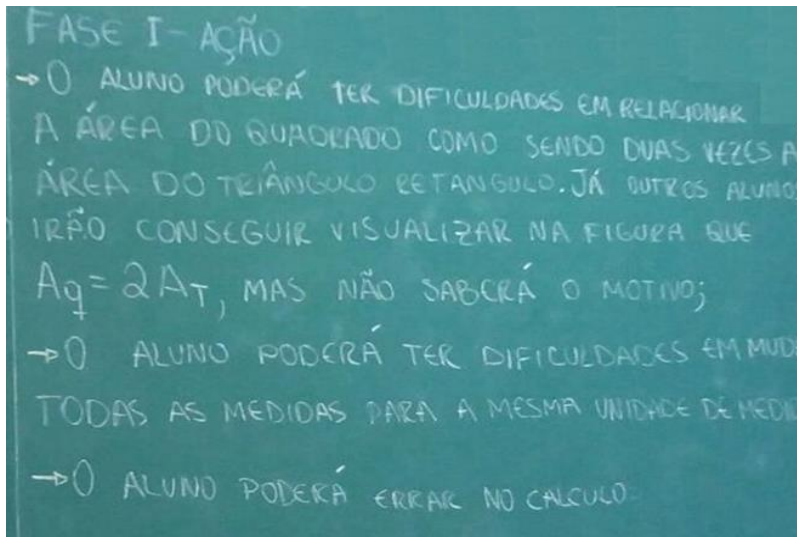 FASE I - AÇÃO
→ O ALUNO PODERÁ TER DIFICULDADES EM RELACIONAR
A ÁREA DO QUADRADO COMO SENDO DUAS VEZES A
ÁREA DO TRIÂNGULO RETANGULO. JÁ OUTROS ALUNOS
IRÃO CONSEGUIR VISUALIZAR NA FIGURA QUE
Aq = 2AT, MAS NÃO SABERÁ O MOTIVO;
→ O ALUNO PODERÁ TER DIFICULDADES EM MUDA
TODAS AS MEDIDAS PARA A MESMA UNIDADE DE MEDID
→ O ALUNO PODERÁ ERRAR NO CALCULO.